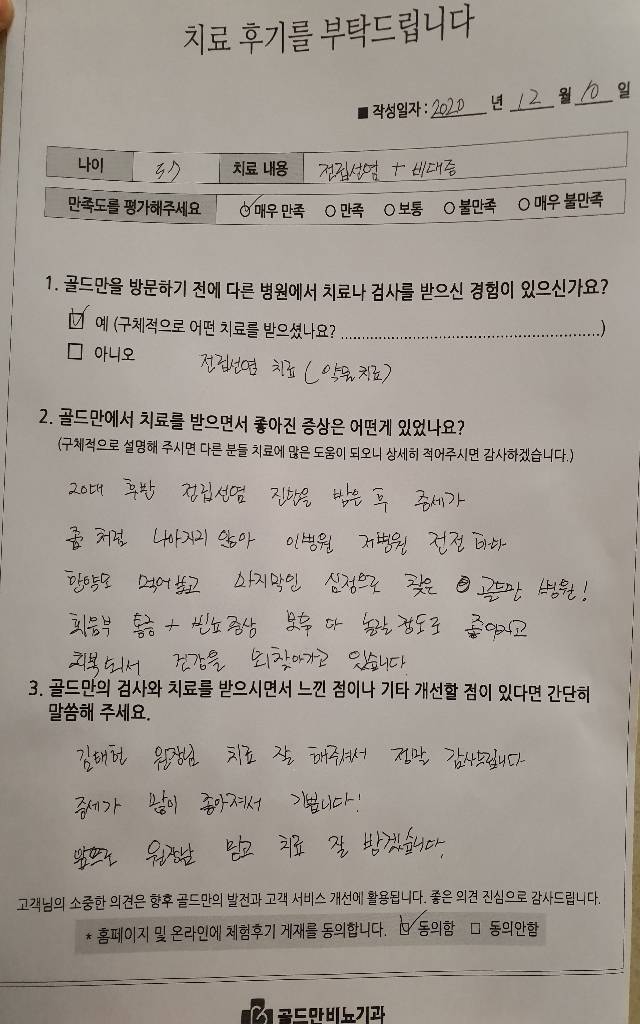 치료 후기를 부탁드립니다
■ 작성일자 : 2020 년 12 월 10 일
나이 37 치료 내용 전립선염 + 비대증
만족도를 평가해주세요 매우 만족 만족 보통 불만족 매우 불만족
1. 골드만을 방문하기 전에 다른 병원에서 치료나 검사를 받으신 경험이 있으신가요?
예 (구체적으로 어떤 치료를 받으셨나요? )
아니오 전립선염 치료 (약물치료)
2. 골드만에서 치료를 받으면서 좋아진 증상은 어떤게 있었나요?
(구체적으로 설명해 주시면 다른 분들 치료에 많은 도움이 되오니 상세히 적어주시면 감사하겠습니다.)
20대 후반 전립선염 진단을 받은 후 증세가
좀처럼 나아지지 않아 이병원 저병원 전전하다
한약도 먹어보고 마지막인 심정으로 찾은 골드만 병원!
회음부 통증 + 빈뇨증상 모두 다 놀랄 정도로 좋아지고
회복되서 건강을 되찾아가고 있습니다.
3. 골드만의 검사와 치료를 받으시면서 느낀 점이나 기타 개선할 점이 있다면 간단히
말씀해 주세요.
김태헌 원장님 치료 잘 해주셔서 정말 감사드립니다
증세가 많이 좋아져서 기쁩니다!
앞으로 원장님 믿고 치료 잘 받겠습니다.
고객님의 소중한 의견은 향후 골드만의 발전과 고객 서비스 개선에 활용됩니다. 좋은 의견 진심으로 감사드립니다.
* 홈페이지 및 온라인에 체험후기 게재를 동의합니다. 동의함 동의안함
골드만비뇨기과